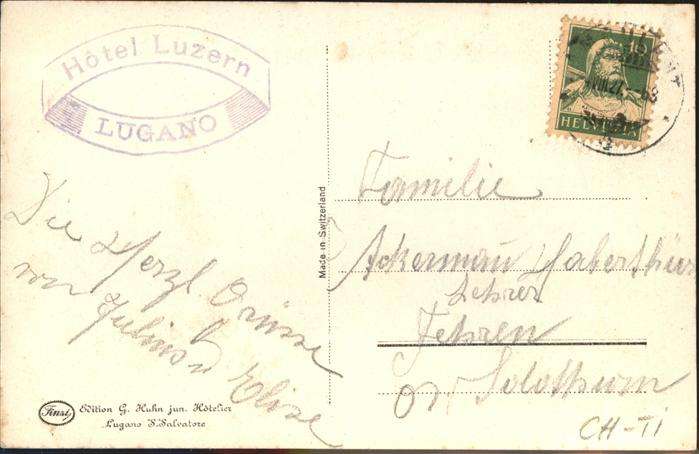 Hôtel Luzern
LUGANO
Die Herzl Grüsse
von Julius u Elise
Finzi
Edition G. Huhn jun. Hôtelier
Lugano S. Salvatore
Made in Switzerland
10
HELVETIA
Familie
Ackermann Haberthür
Lehrer
Fehren
Solothurn
CH-TI